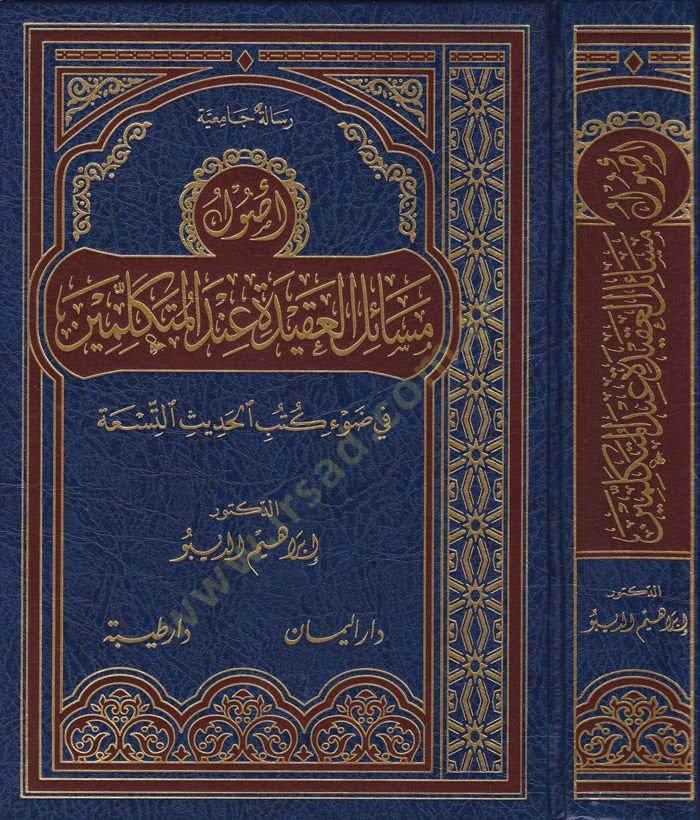 رسالة جامعية
أصول
مسائل العقيدة عند المتكلمين
في ضوء كتب الحديث التسعة
الدكتور
إبراهيم الديبو
دار اليمان
دار طيبة
أصول
مسائل العقيدة عند المتكلمين
الدكتور
إبراهيم الديبو
www.irsad.com